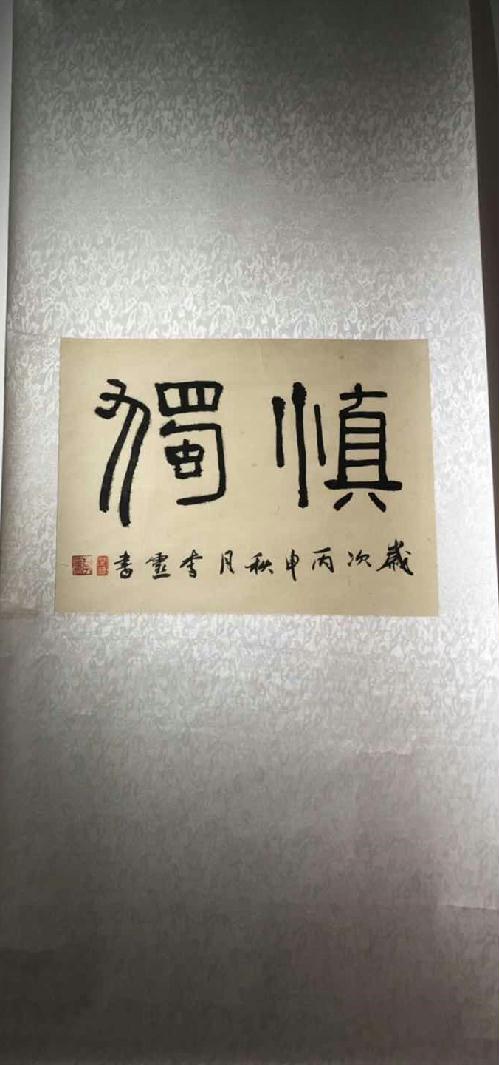 慎獨
歲次丙申秋月李靈書